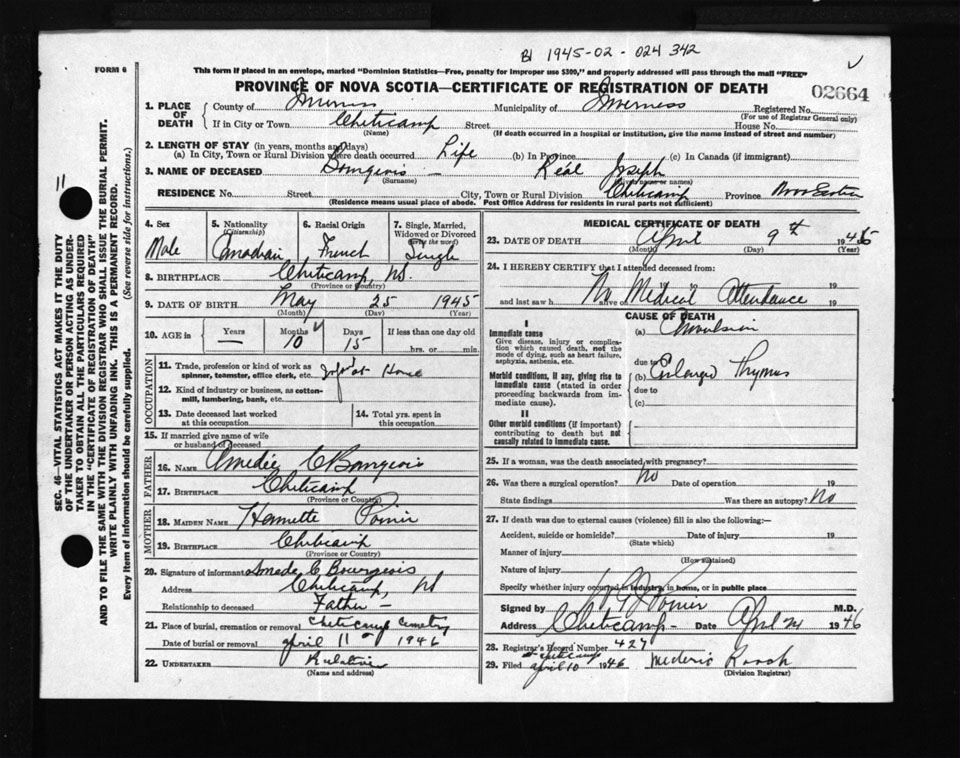 BI 1945-02-024342
FORM 6
This form if placed in an envelope, marked "Dominion Statistics—Free, penalty for improper use $300," and properly addressed will pass through the mail "FREE"
PROVINCE OF NOVA SCOTIA—CERTIFICATE OF REGISTRATION OF DEATH
02664
1. PLACE OF DEATH
County of Inverness Municipality of Inverness Registered No.
(For use of Registrar General only)
If in City or Town Cheticamp Street House No.
(Name) (If death occurred in a hospital or institution, give the name instead of street and number)
2. LENGTH OF STAY (in years, months and days)
(a) In City, Town or Rural Division where death occurred Life (b) In Province (c) In Canada (if immigrant)
3. NAME OF DECEASED Bourgeois Réal Joseph
(Surname) (Given name or names)
RESIDENCE No. Street City, Town or Rural Division Cheticamp Province Nova Scotia
(Residence means usual place of abode. Post Office Address for residents in rural parts not sufficient)
SEC. 46—VITAL STATISTICS ACT MAKES IT THE DUTY
OF THE UNDERTAKER OR PERSON ACTING AS UNDER-
TAKER TO OBTAIN ALL THE PARTICULARS REQUIRED
IN THE "CERTIFICATE OF REGISTRATION OF DEATH"
AND TO FILE THE SAME WITH THE DIVISION REGISTRAR WHO SHALL ISSUE THE BURIAL PERMIT.
WRITE PLAINLY WITH UNFADING INK. THIS IS A PERMANENT RECORD.
Every item of information should be carefully supplied. (See reverse side for instructions.)
4. Sex 5. Nationality (Citizenship) 6. Racial Origin 7. Single, Married, Widowed or Divorced (Write the word)
Male Canadian French Single
8. BIRTHPLACE Cheticamp, NS.
(Province or Country)
9. DATE OF BIRTH May 25 1945
(Month) (Day) (Year)
10. AGE in Years Months Days If less than one day old
— 10 15 hrs. or min.
OCCUPATION
11. Trade, profession or kind of work as
spinner, teamster, office clerk, etc. at Home
12. Kind of industry or business, as cotton-
mill, lumbering, bank, etc.
13. Date deceased last worked
at this occupation
14. Total yrs. spent in
this occupation
15. If married give name of wife
or husband of deceased
FATHER
16. NAME Amedée C Bourgeois
17. BIRTHPLACE Cheticamp
(Province or Country)
MOTHER
18. MAIDEN NAME Poirier
19. BIRTHPLACE Cheticamp
(Province or Country)
20. Signature of informant Amede C Bourgeois
Address Cheticamp, NS
Relationship to deceased Father —
21. Place of burial, cremation or removal Cheticamp Cemetry
Date of burial or removal april 11 1946
22. UNDERTAKER Relatives
(Name and address)
MEDICAL CERTIFICATE OF DEATH
23. DATE OF DEATH April 9th 19
(Month) (Day) (Year)
24. I HEREBY CERTIFY that I attended deceased from:
19 to 19
and last saw h alive on No Medical Attendance 19
CAUSE OF DEATH
I
Immediate cause
Give disease, injury or complica-
tion which caused death, not the
mode of dying, such as heart failure,
asphyxia, asthenia, etc.
(a) Convulsion
due to
Morbid conditions, if any, giving rise to
immediate cause (stated in order
proceeding backwards from im-
mediate cause).
(b) Enlarged Thymus
due to
(c)
II
Other morbid conditions (if important)
contributing to death but not
causally related to immediate cause.
25. If a woman, was the death associated with pregnancy?
26. Was there a surgical operation? No Date of operation 19
State findings Was there an autopsy? No
27. If death was due to external causes (violence) fill in also the following:—
Accident, suicide or homicide? Date of injury 19
(State which)
Manner of injury
(How sustained)
Nature of injury
Specify whether injury occurred in industry, in home, or in public place
Signed by Poirier M.D.
Address Cheticamp — Date April 24 1946
28. Registrar's Record Number 427
at Cheticamp
29. Filed april 10 1946 Mederic Roach
(Division Registrar)